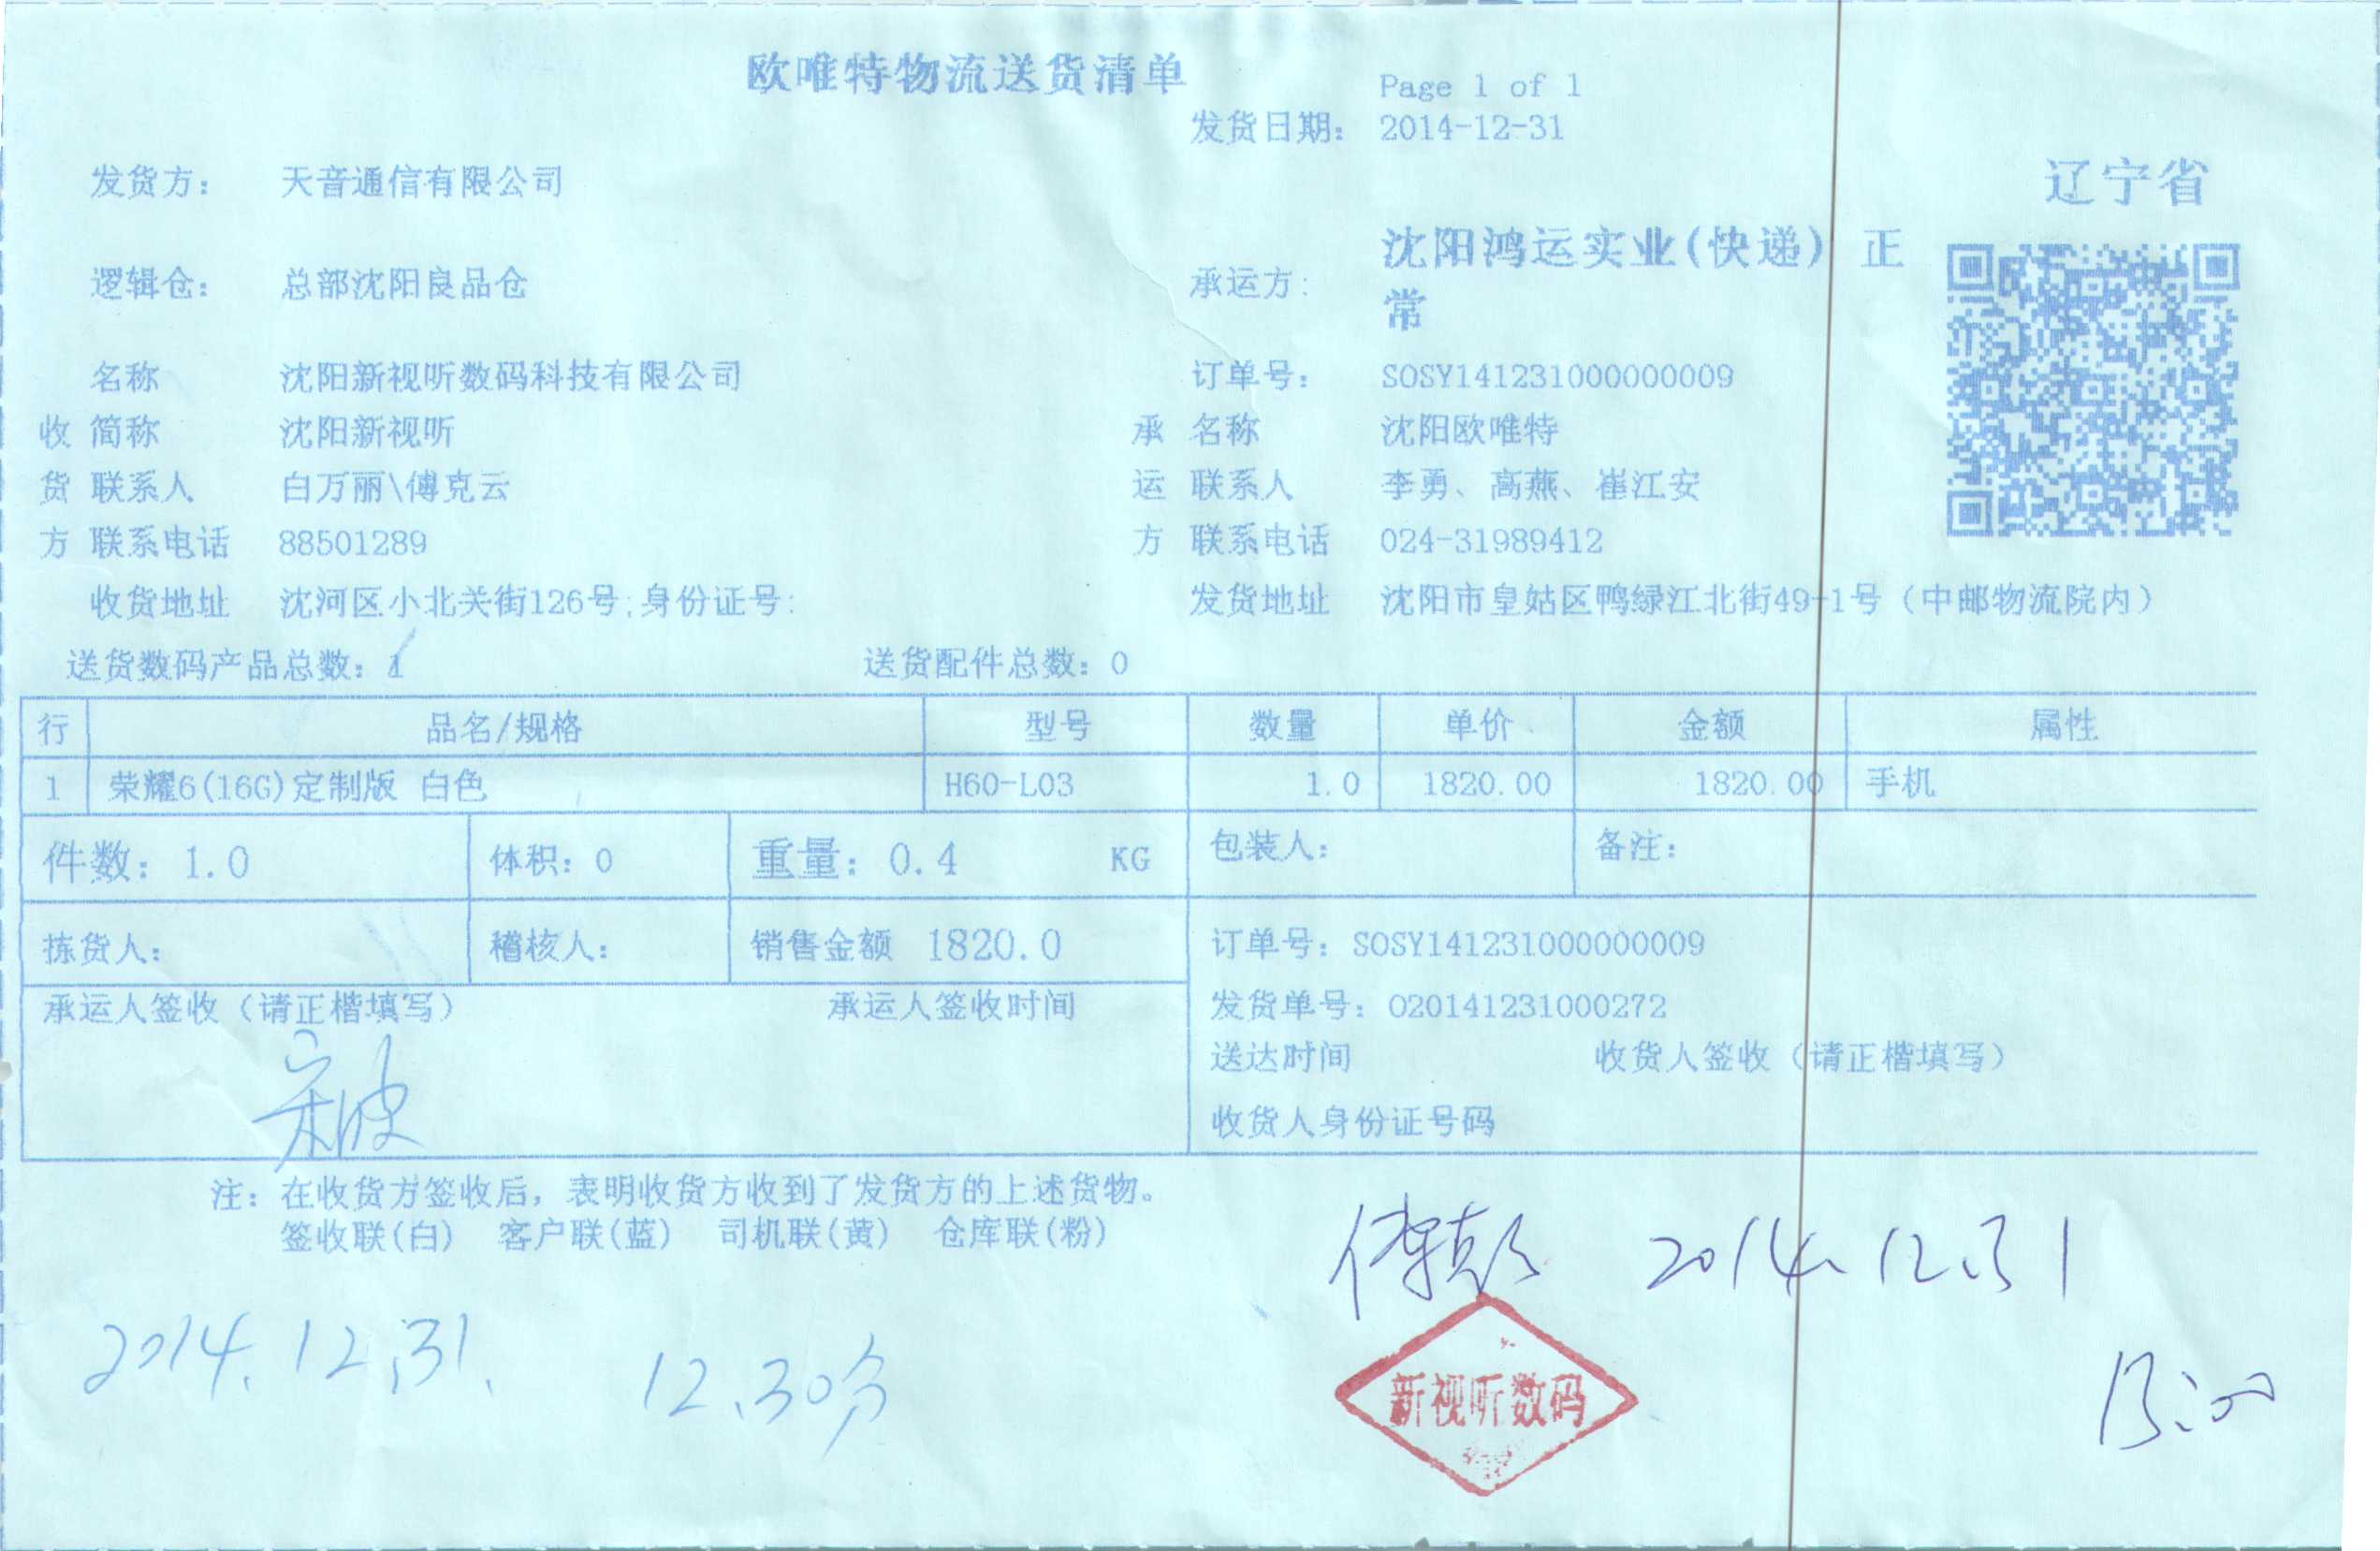 欧唯特物流送货清单
Page 1 of 1
发货日期： 2014-12-31
发货方： 天音通信有限公司
辽宁省
逻辑仓： 总部沈阳良品仓
承运方： 沈阳鸿运实业(快递) 正
常
名称 沈阳新视听数码科技有限公司 订单号： SOSY141231000000009
收 简称 沈阳新视听 承 名称 沈阳欧唯特
货 联系人 白万丽\傅克云 运 联系人 李勇、高燕、崔江安
方 联系电话 88501289 方 联系电话 024-31989412
收货地址 沈河区小北关街126号;身份证号: 发货地址 沈阳市皇姑区鸭绿江北街49-1号（中邮物流院内）
送货数码产品总数：1 送货配件总数：0
行 品名/规格 型号 数量 单价 金额 属性
1 荣耀6(16G)定制版 白色 H60-L03 1.0 1820.00 1820.00 手机
件数：1.0 体积：0 重量：0.4 KG 包装人： 备注：
拣货人： 稽核人： 销售金额 1820.0 订单号：SOSY141231000000009
承运人签收（请正楷填写） 承运人签收时间 发货单号：O20141231000272
送达时间 收货人签收（请正楷填写）
宋波
收货人身份证号码
注：在收货方签收后，表明收货方收到了发货方的上述货物。
签收联(白) 客户联(蓝) 司机联(黄) 仓库联(粉)
2014.12.31
2014.12.31. 12.30分
新视听数码
13:00